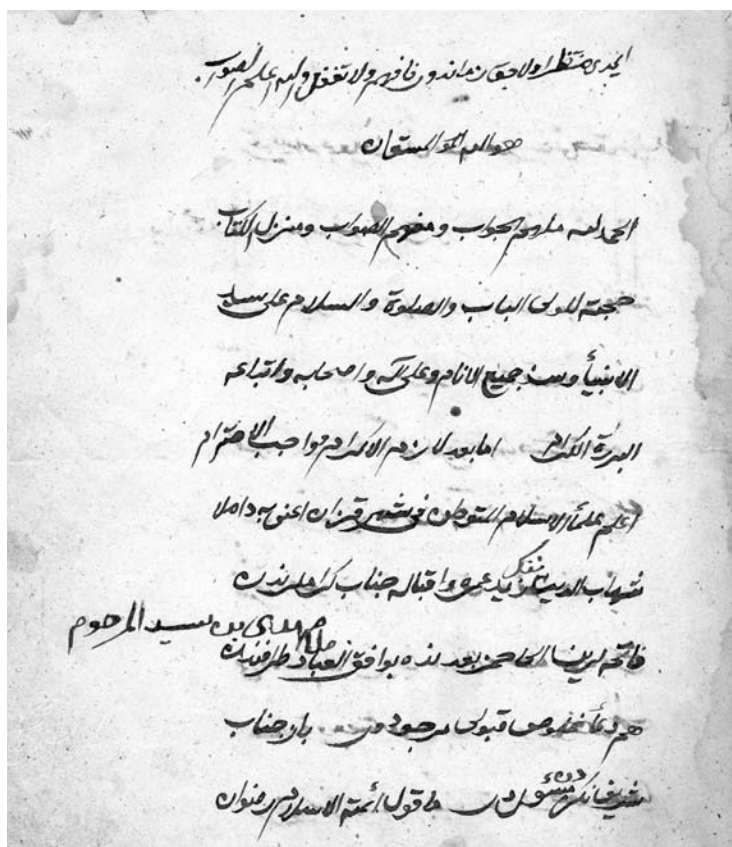 ايمدى منتظر اولاجقزنداندون فافهم ولا تغفل والله اعلم الصواب
هو الله المستعان
الحمد لله ملهم الجواب ومفهم الصواب ومنزل الكتاب
حجة لاولى الباب والصلوة والسلام على سيد
الانبيأ وسند جميع الانام وعلى آله واصحابه واتباعه
البررة الكرام اما بعد لازم الاكرام واجب الاحترام
اعلم علمأ الاسلام المتوطن فى شهر قزان اعنى به داملا
شهاب الدين ننك زيد عمره واقباله جناب كرامى لرندن
ملا مهدى بن سيد المرحوم
بعدنده بو افقر العباد طرفندن
هم دعأ قبولى مرجودر باز جناب
شريفنكزدن مسئولدر ما قول ائمة الاسلام رضوان